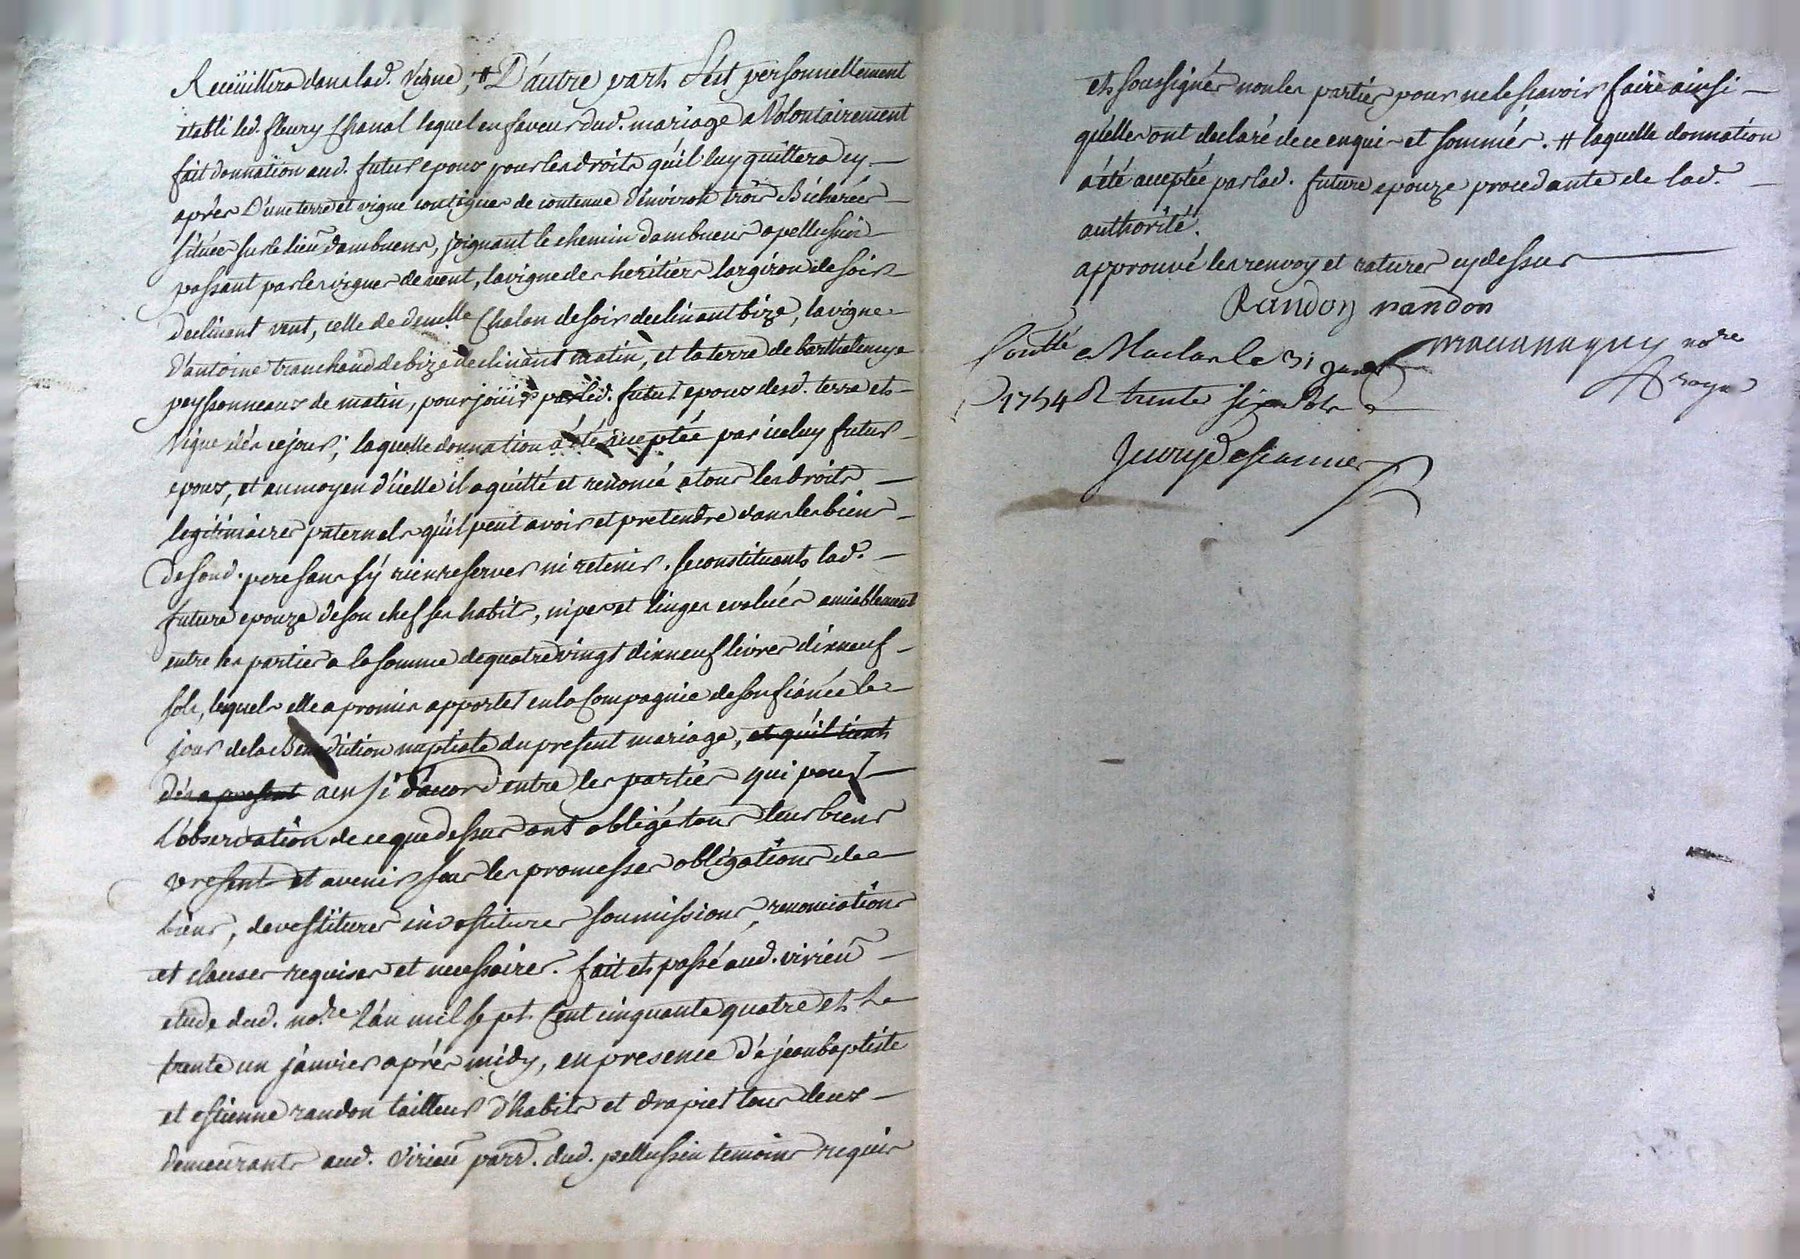 Receüillira dans lad. vigne, # D'autre part s'est personnellement
etabli led. fleury Chanal lequel en faveur dud. mariage a volontairement
fait donnation aud. futur epoux pour les droits qu'il luy quittera cy
après D'une terre et vigne contigues de contenue d'environ trois Bicherées
située sur le lieu dambuens, joignant le chemin dambuens a pellussin
passant par les vignes de vent, la vigne des heritiers largiron de soir
declinant vent, celle de demelle Chalon de soir declinant bize, la vigne
d'antoine tranchand de bize declinant matin, et la terre de barthelemy
peyssonneaux de matin, pour joüir par led. futur epoux desd. terre et
vigne dès ce jour; laquelle donnation a été acceptée par iceluy futur
epoux, et au moyen d'icelle il a quitté et renoncé a tous les droits
legitimaires paternels qu'il peut avoir et pretendre dans les biens
de sond. pere sans s'y rien reserver ni retenir. se constituant lad.
future epouze de son chef ses habits, nipes et linges evalués amiablement
entre les parties a la somme de quatre vingt dix neuf livres dix neuf
sols, lequels elle a promis apporter en la Compagnie de son fiancé le
jour de la Benediction nuptiale du present mariage, et qu'il tient
dès a present ainsi d'accord entre les parties qui pour
L'observation de ce que dessus ont obligé tous leurs biens
present et avenir sous les promesses obligations de
biens, devestitures investitures soumissions, renonciations
et clauses requises et necessaires. fait et passé aud. virieu
etude dud. nore. L'an mil sept Cent cinquante quatre et le
trente un janvier après midy, en presence de jean baptiste
et estienne randon tailleur d'habits et drapier tous deux
demeurants aud. virieu parr. dud. pellussin temoins requis
et soussignés non les parties pour ne le sçavoir faire ainsi
qu'elles ont declaré de ce enquis et sommés. # laquelle donnation
a été acceptée par lad. future epouze procedante de lad.
authorité.
approuvé les renvoy et ratures cy dessus
Randon randon
nore
Conttlé a Maclas le 31 janer
royal
1754 R trente six sols